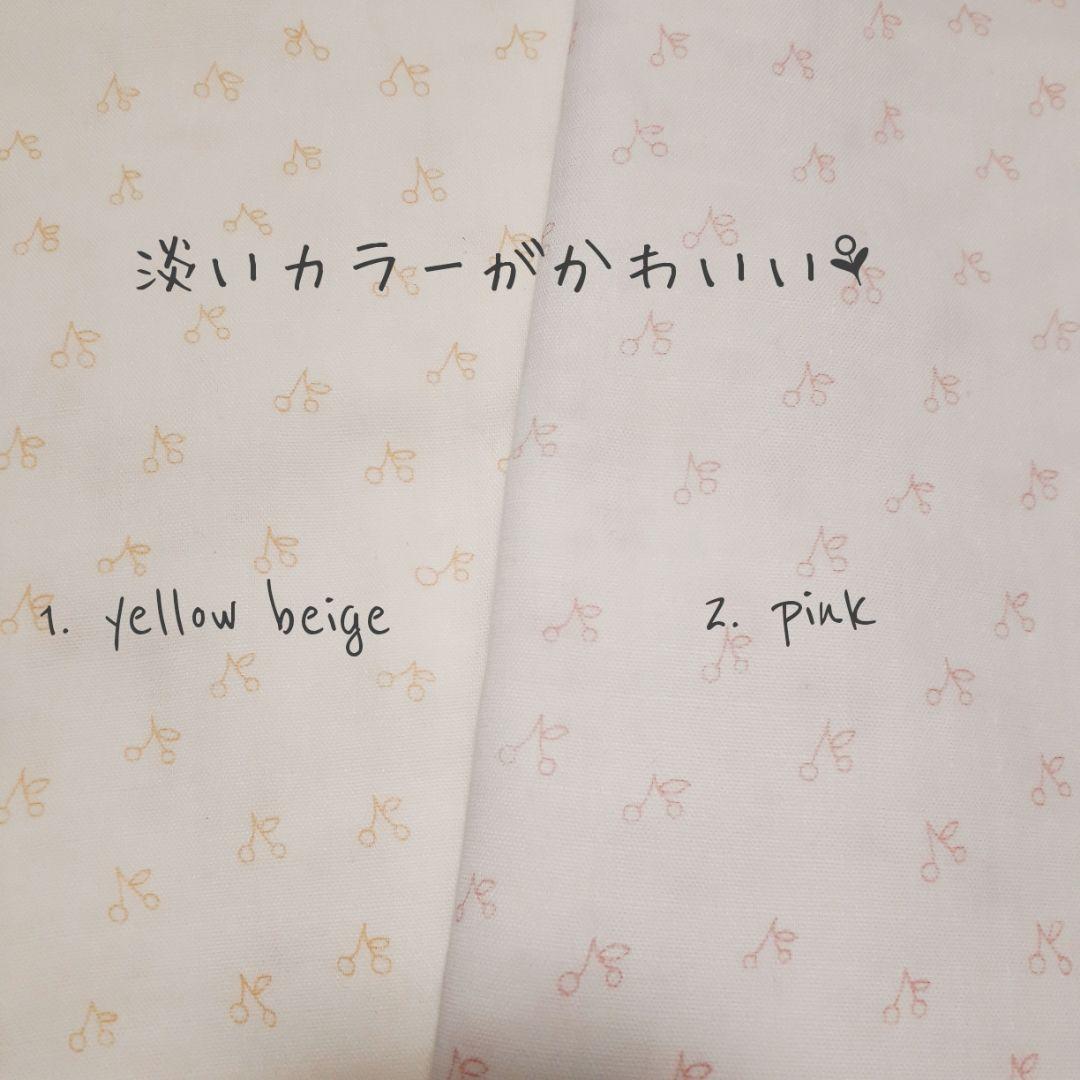 淡いカラーがかわいい
1. yellow beige
2. pink